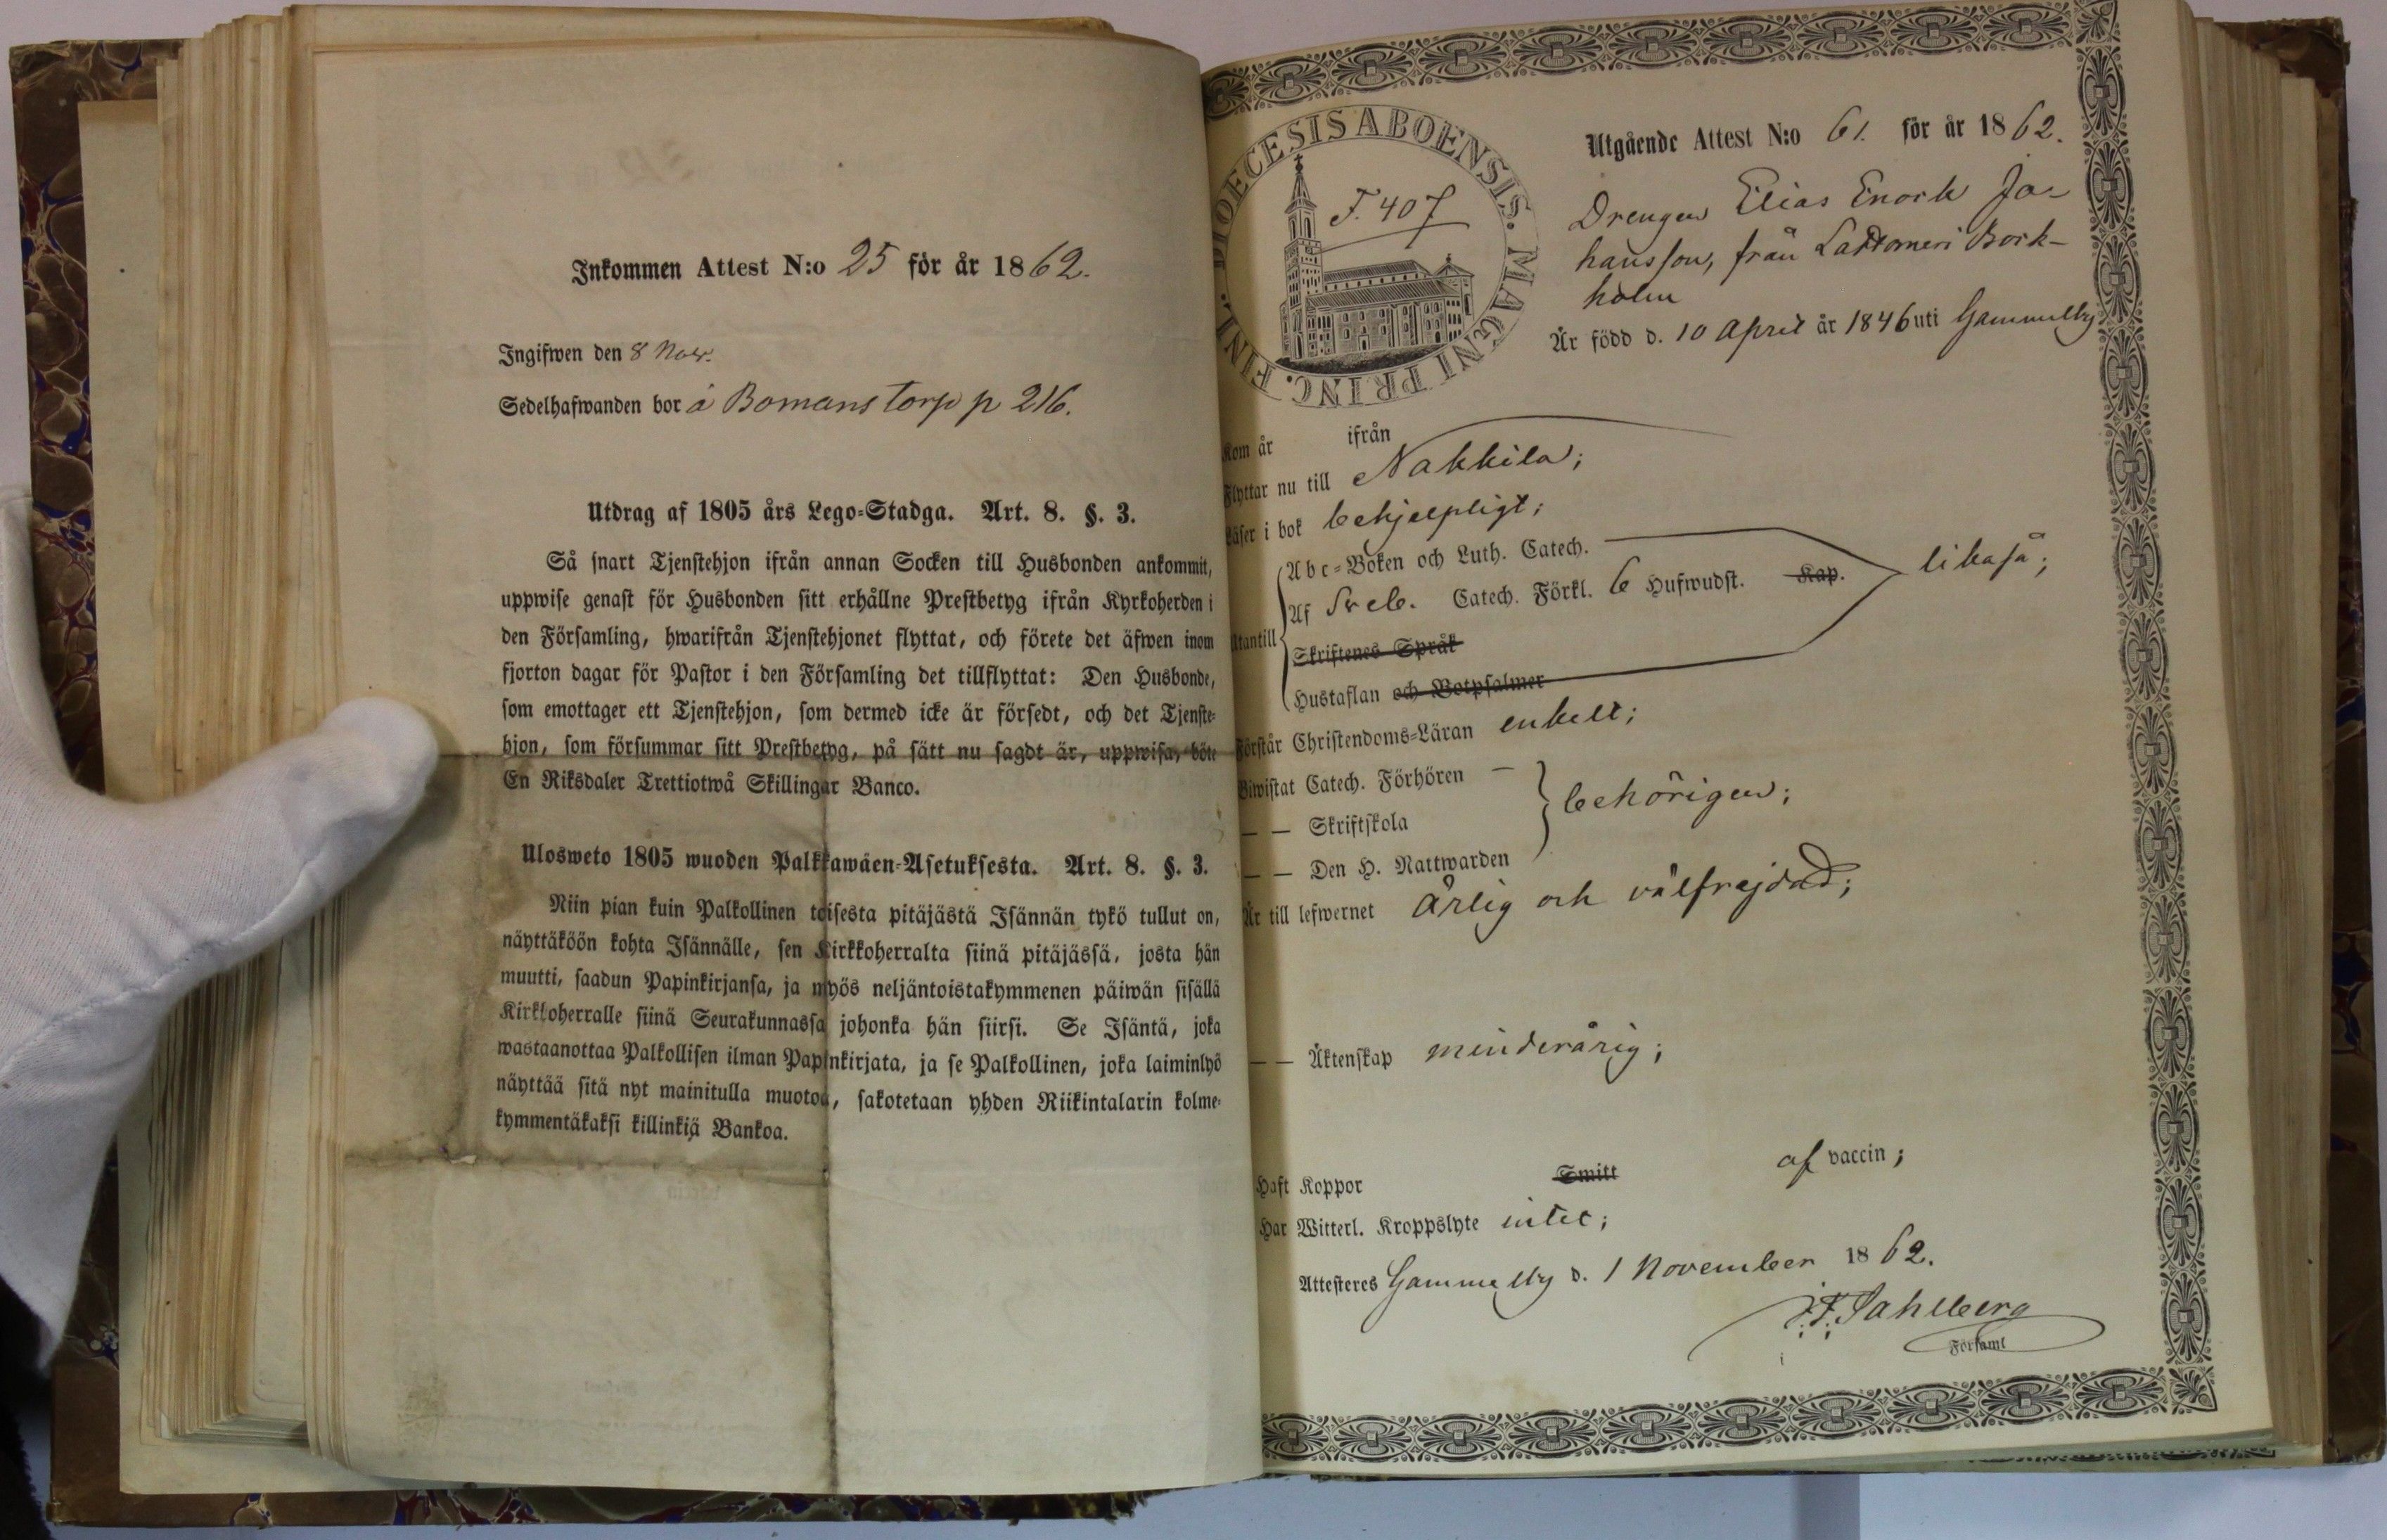 Inkommen Attest N:o 25 för år 1862.
Ingifwen den 8 Nov.
Sedelhafwanden bor å Bomans torp p 216.
Utdrag af 1805 års Lego-Stadga. Art. 8. §. 3.
Så snart Tjenstehjon ifrån annan Socken till Husbonden ankommit,
uppwise genast för Husbonden sitt erhållne Prestbetyg ifrån Kyrkoherden i
den Församling, hwarifrån Tjenstehjonet flyttat, och förete det äfwen inom
fjorton dagar för Pastor i den Församling det tillflyttat: Den Husbonde,
som emottager ett Tjenstehjon, som dermed icke är försedt, och det Tjenste-
hjon, som försummar sitt Prestbetyg, på sätt nu sagdt är, uppwisa, böte
En Riksdaler Trettiotwå Skillingar Banco.
Ulosweto 1805 wuoden Palkkawäen-Asetuksesta. Art. 8. §. 3.
Niin pian kuin Palkollinen toisesta pitäjästä Isännän tykö tullut on,
näyttäköön kohta Isännälle, sen Kirkkoherralta siinä pitäjässä, josta hän
muutti, saadun Papinkirjansa, ja myös neljäntoistakymmenen päiwän sisällä
Kirkkoherralle siinä Seurakunnassa johonka hän siirsi. Se Isäntä, joka
wastaanottaa Palkollisen ilman Papinkirjata, ja se Palkollinen, joka laiminlyö
näyttää sitä nyt mainitulla muotoa, sakotetaan yhden Riikintalarin kolme-
kymmentäkaksi killinkiä Bankoa.
DIOECESIS ABOENSIS. MAGNI PRINC. FINL.
F. 407
Utgående Attest N:o 61. för år 1862.
Drengen Elias Enok Jo-
hansson, från Lattomeri Bork-
holm
Är född d. 10 April år 1846 uti Gammelby
Kom år ifrån
Flyttar nu till Nakkila;
Läser i bok behjelpligt;
Abc-Boken och Luth. Catech.
Af Sveb. Catech. Förkl. 6 Hufwudst. Kap. likaså;
Utantill
Skriftenes Språk
Hustaflan och Botpsalmer
Förstår Christendoms-Läran enkelt;
Biwistat Catech. Förhören —
— — Skriftskola behörigen;
— — Den H. Nattwarden
Är till lefwernet ärlig och välfrejdad;
— — Äktenskap minderårig;
Haft Koppor Smitt af vaccin;
Har Witterl. Kroppslyte intet;
Attesteres Gammelby d. 1 November 1862.
Sahlberg
i Församl